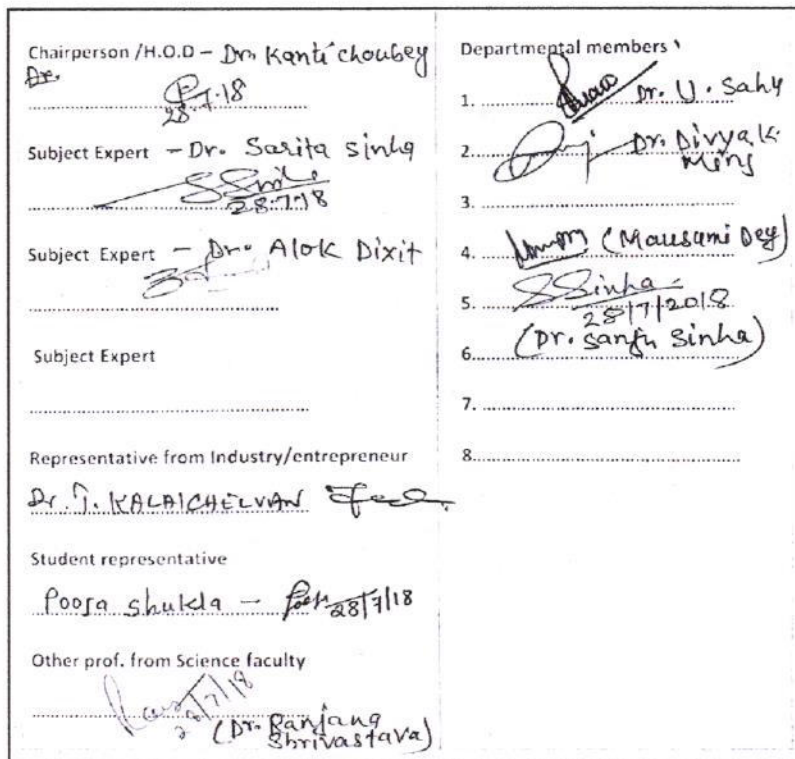 Chairperson /H.O.D – Dr. Kanti choubey
Dr.
28.7.18
Subject Expert – Dr. Sarita Sinha
28.7.18
Subject Expert – Dr. Alok Dixit
Subject Expert
Representative from Industry/entrepreneur
Dr. T. KALAICHELVAN
Student representative
Pooja Shukla – 28/7/18
Other prof. from Science faculty
28/7/18
(Dr. Ranjana
Shrivastava)
Departmental members
1. Dr. U. Sahu
2. Dr. Divya K.
Minj
3.
4. (Mausami Dey)
5. SSinha
28/7/2018
(Dr. Sanju Sinha)
6.
7.
8.